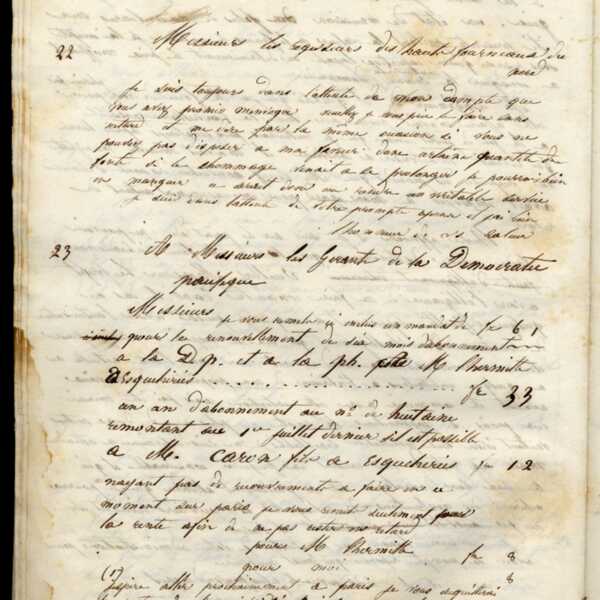 22 Messieurs les régisseurs des hauts fourneaux du
nord
Je suis toujours dans l'attente de mon compte que
vous avez promis veuillez je vous prie le faire sans
retard et me dire par la même occasion si vous ne
pouvez pas disposer a ma faveur d'une certaine quantité de
fonte si le chommage venait a se prolonger je pourrais bien
en manquer ce serait donc me rendre un véritable service
je suis dans l'attente de votre prompte réponse et j'ai bien
l'honneur de vs saluer
23 A Messieurs les Gérants de la Démocratie
pacifique
Messieurs
je vous remets ci inclus un mandat de fr 61
pour le renouvellement de six mois d'abonnement
a la D. p. et a la ph. M. Lhermitte
d'Esquehéries . . . . . . . . . . . fr 33
un an d'abonnement au n° de huitaine
remontant au 1er juillet dernier s'il est possible
a M. Caron fils a Esqueheries 12
n'ayant pas de recouvrements a faire en ce
moment sur paris je vous remets seulement pour
la rente afin de ne pas rester en retard
pour M Lhermitte fr 8
pour moi 8
(1) J'espère aller prochainement a paris je vous